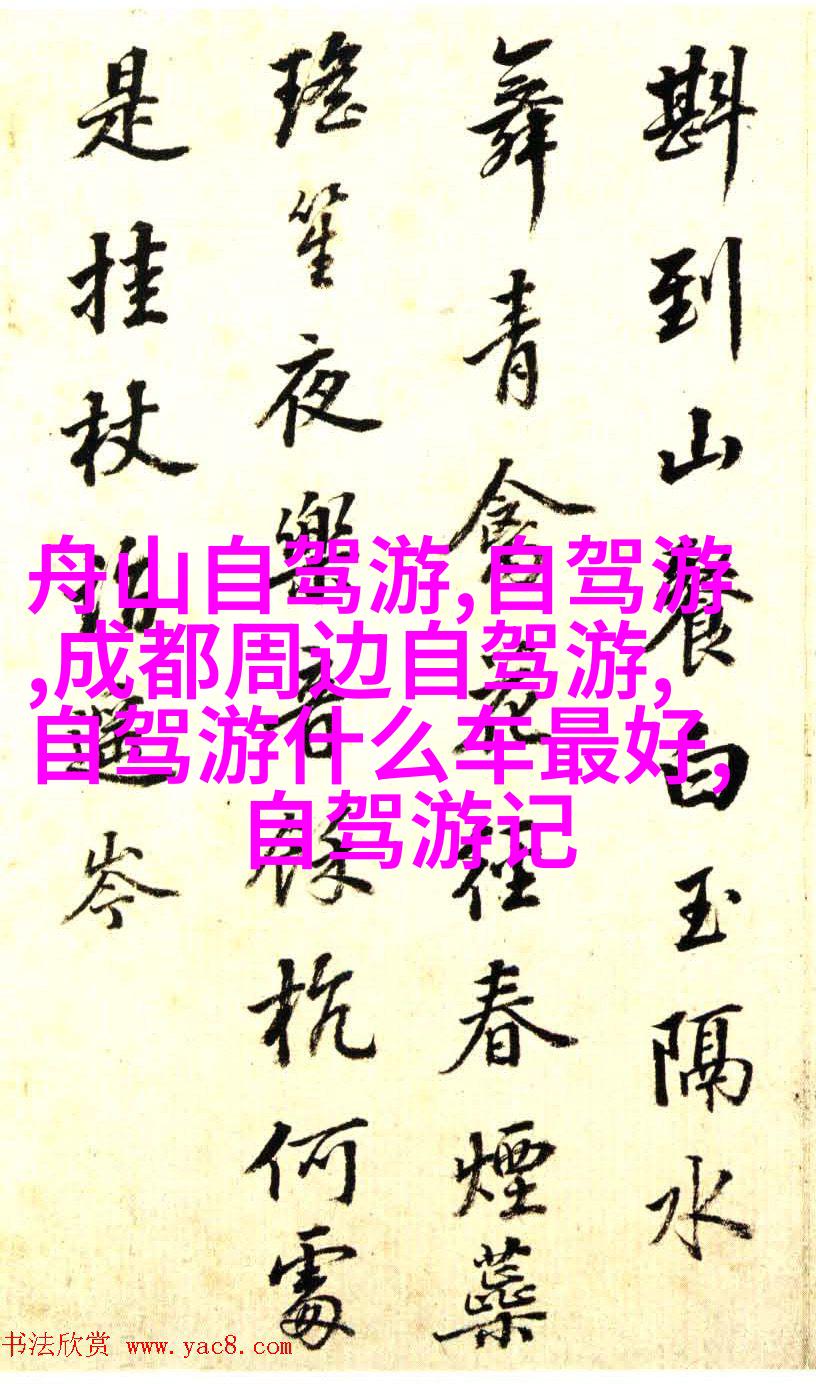 斟到山餐白玉隔水
舞青禽荒徑春煙蘂
瑤笙夜樂音餘杭何處
是挂杖訪遙岑
舟山自驾游,自驾游
,成都周边自驾游,
自驾游什么车最好,
自驾游记
书法欣赏 www.yac8.com